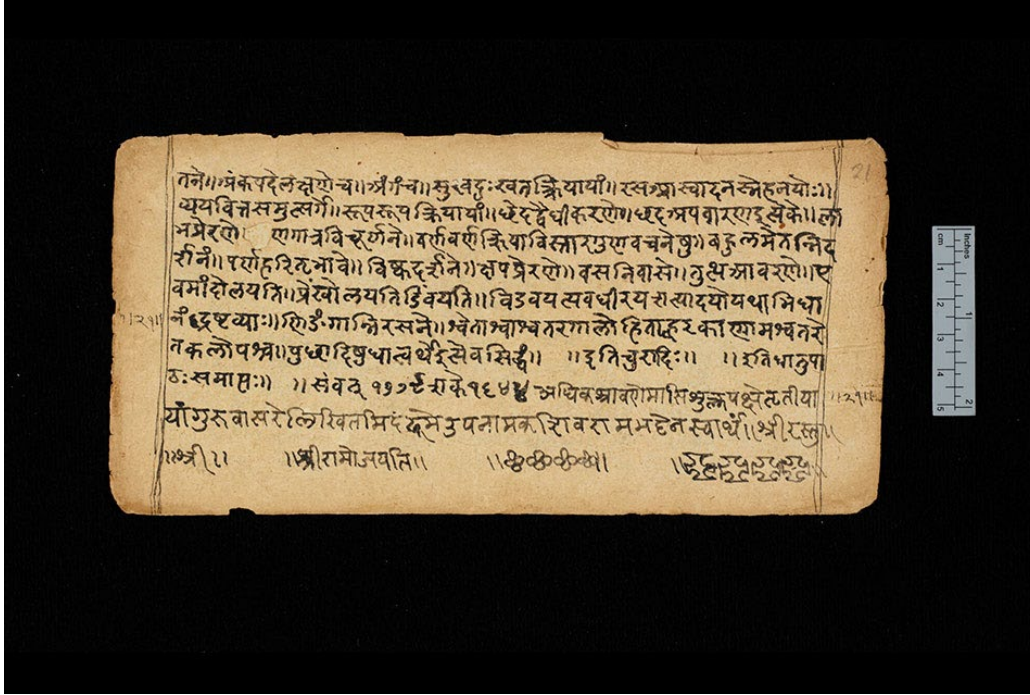 तने॥अंकपदेलक्षणेच॥अंगंच॥सुखदुःखतत्क्रियायां॥रसआस्वादनस्नेहनयोः॥
व्ययवित्तसमुत्सर्गे॥रूपरूपक्रियायां॥छेदद्वैधीकरणे॥छदअपवारणइत्येके॥ला
भप्रेरणे॥ व्रणगात्रविचूर्णने॥वर्णवर्णक्रियाविस्तारगुणवचनेषु॥बहुलमेतन्निद
र्शनं॥पर्णहरितभावे॥विष्कदर्शने॥क्षपप्रेरणे॥वसनिवासे॥तुत्थआवरणे॥ए
वमांदोलयति॥प्रेंखोलयति॥विडंबयति॥अवधीरय
द्रष्टव्याः॥णिङंगान्निरसने॥श्वेताश्वाश्वतरगालोडिताह्वरकाणामश्वतरे
तकलोपश्च॥पुच्छादिषुधात्वर्थइत्येवसिद्धं॥ ॥इतिचुरादिः॥ ॥इतिधातुपा
ठः समाप्तः॥ ॥संवत् शके१६४४ अधिकश्रावणेमासिशुक्लपक्षेतृतीया
यांगुरुवासरेलिखितमिदं उपनामकशिवरामभट्टेनस्वार्थं॥श्रीरस्तु॥
॥श्री॥ ॥श्रीरामोजयति॥
॥२१॥
॥२१॥
21
Inches
cm
1
2
3
4
5
1
2